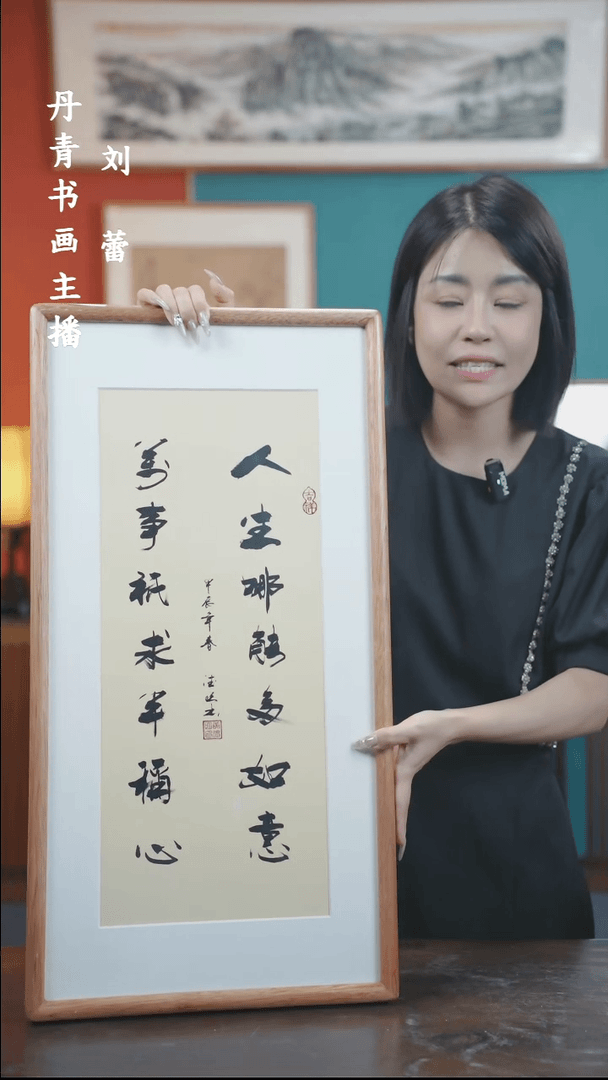 丹青书画主播
刘蕾
人生哪能多如意
萬事祇求半稱心
甲辰年春